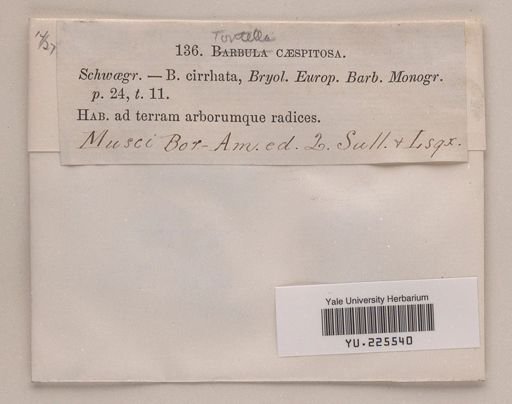 Tortella
136. BARBULA CÆSPITOSA.
Schwægr. — B. cirrhata, Bryol. Europ. Barb. Monogr.
p. 24, t. 11.
HAB. ad terram arborumque radices.
Musci Bor-Am. ed. 2. Sull. & Lsqx.
Yale University Herbarium
YU.225540